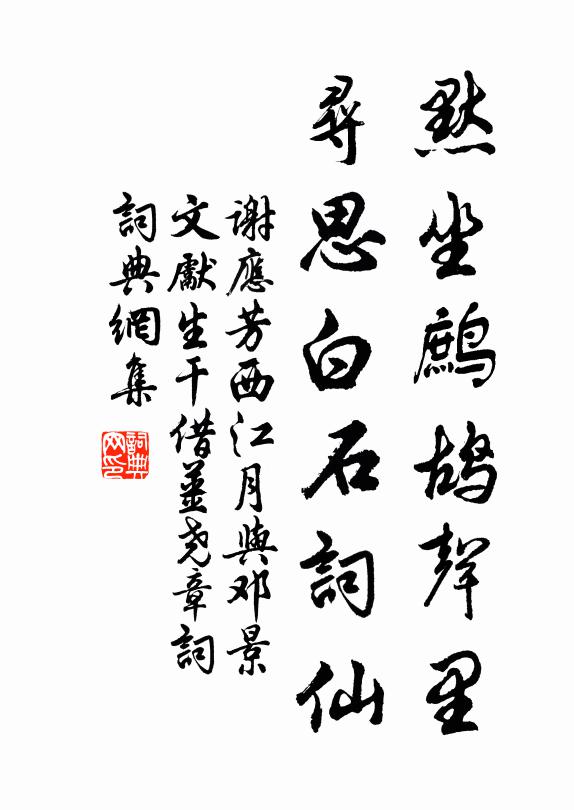 默坐鹧鸪聲里
尋思白石詞仙
謝應芳西江月與邓景
文獻生干借姜尧章詞
詞典網集
詞典网印